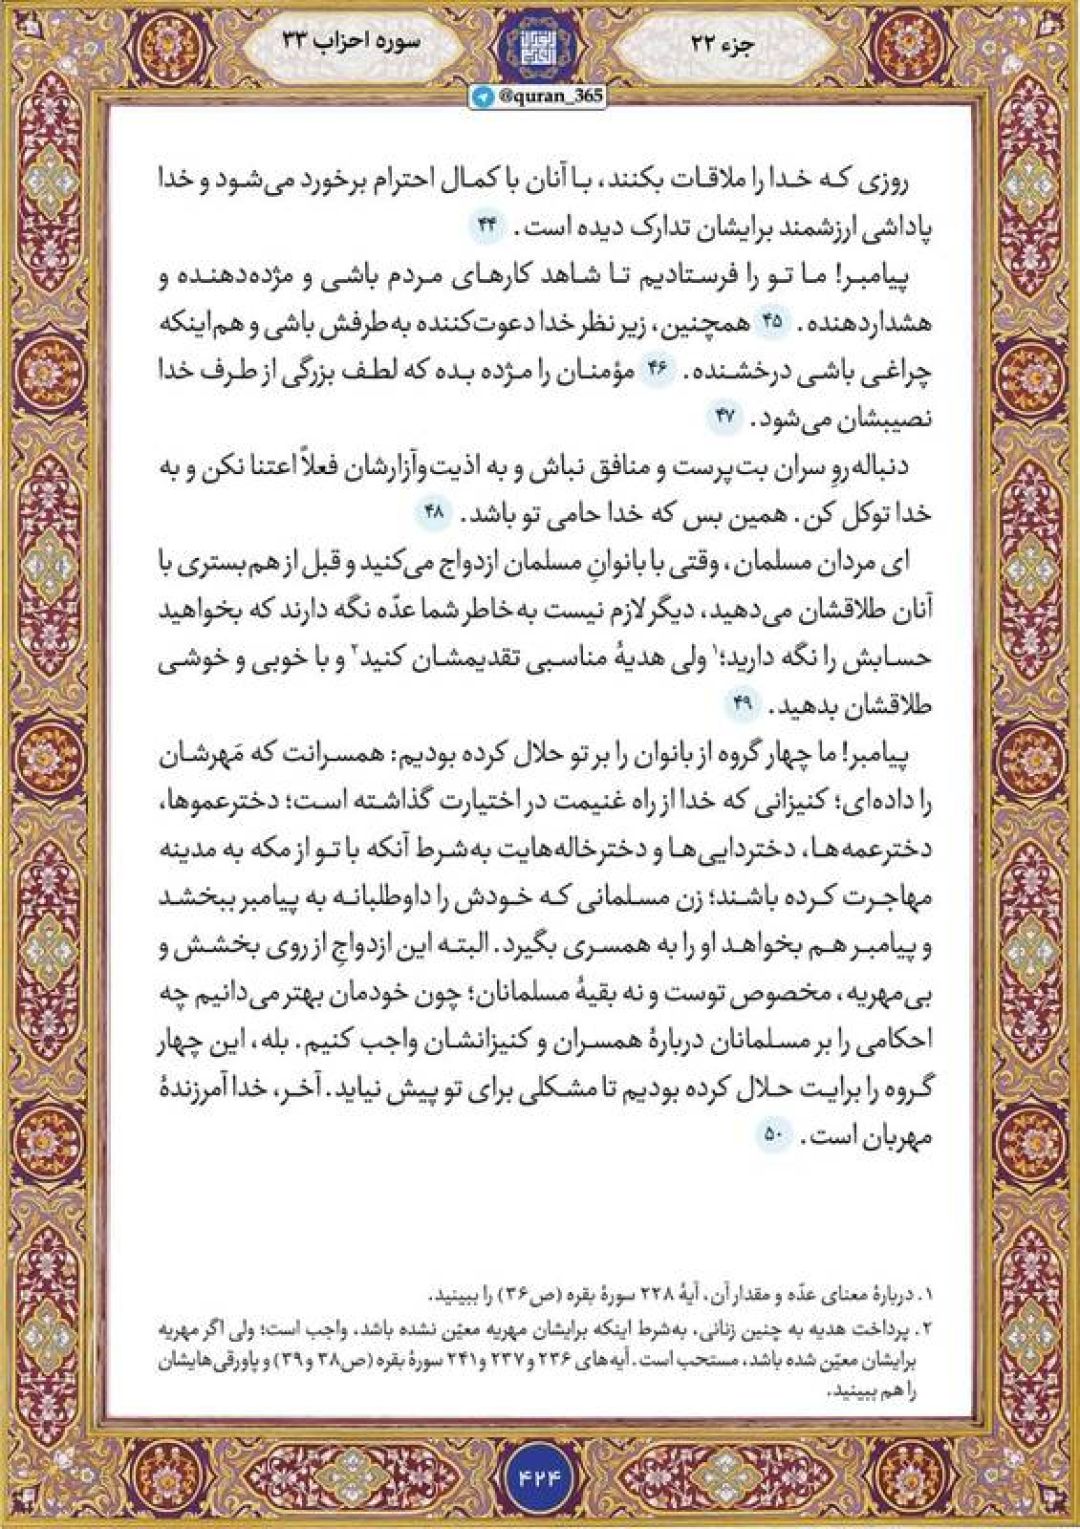 جزء ۲۲
سوره احزاب ۳۳
@quran_365
روزی که خدا را ملاقات بکنند، با آنان با کمال احترام برخورد می‌شود و خدا
پاداشی ارزشمند برایشان تدارک دیده است. ۴۴
پیامبر! ما تو را فرستادیم تا شاهد کارهای مردم باشی و مژده‌دهنده و
هشداردهنده. ۴۵ همچنین، زیر نظر خدا دعوت‌کننده به‌طرفش باشی و هم اینکه
چراغی باشی درخشنده. ۴۶ مؤمنان را مژده بده که لطف بزرگی از طرف خدا
نصیبشان می‌شود. ۴۷
دنباله‌روِ سران بت‌پرست و منافق نباش و به اذیت‌وآزارشان فعلاً اعتنا نکن و به
خدا توکل کن. همین بس که خدا حامی تو باشد. ۴۸
ای مردان مسلمان، وقتی با بانوانِ مسلمان ازدواج می‌کنید و قبل از هم‌بستری با
آنان طلاقشان می‌دهید، دیگر لازم نیست به‌خاطر شما عدّه نگه دارند که بخواهید
حسابش را نگه دارید؛۱ ولی هدیهٔ مناسبی تقدیمشان کنید۲ و با خوبی و خوشی
طلاقشان بدهید. ۴۹
پیامبر! ما چهار گروه از بانوان را بر تو حلال کرده بودیم: همسرانت که مَهرشان
را داده‌ای؛ کنیزانی که خدا از راه غنیمت در اختیارت گذاشته است؛ دخترعموها،
دخترعمه‌ها، دختردایی‌ها و دخترخاله‌هایت به‌شرط آنکه با تو از مکه به مدینه
مهاجرت کرده باشند؛ زن مسلمانی که خودش را داوطلبانه به پیامبر ببخشد
و پیامبر هم بخواهد او را به همسری بگیرد. البته این ازدواجِ از روی بخشش و
بی‌مهریه، مخصوص توست و نه بقیهٔ مسلمانان؛ چون خودمان بهتر می‌دانیم چه
احکامی را بر مسلمانان دربارهٔ همسران و کنیزانشان واجب کنیم. بله، این چهار
گروه را برایت حلال کرده بودیم تا مشکلی برای تو پیش نیاید. آخر، خدا آمرزندهٔ
مهربان است. ۵۰
۱. دربارهٔ معنای عدّه و مقدار آن، آیهٔ ۲۲۸ سورهٔ بقره (ص۳۶) را ببینید.
۲. پرداخت هدیه به چنین زنانی، به‌شرط اینکه برایشان مهریه معیّن نشده باشد، واجب است؛ ولی اگر مهریه
برایشان معیّن شده باشد، مستحب است. آیه‌های ۲۳۶ و ۲۳۷ و ۲۴۱ سورهٔ بقره (ص۳۸ و ۳۹) و پاورقی‌هایشان
را هم ببینید.
۴۲۴